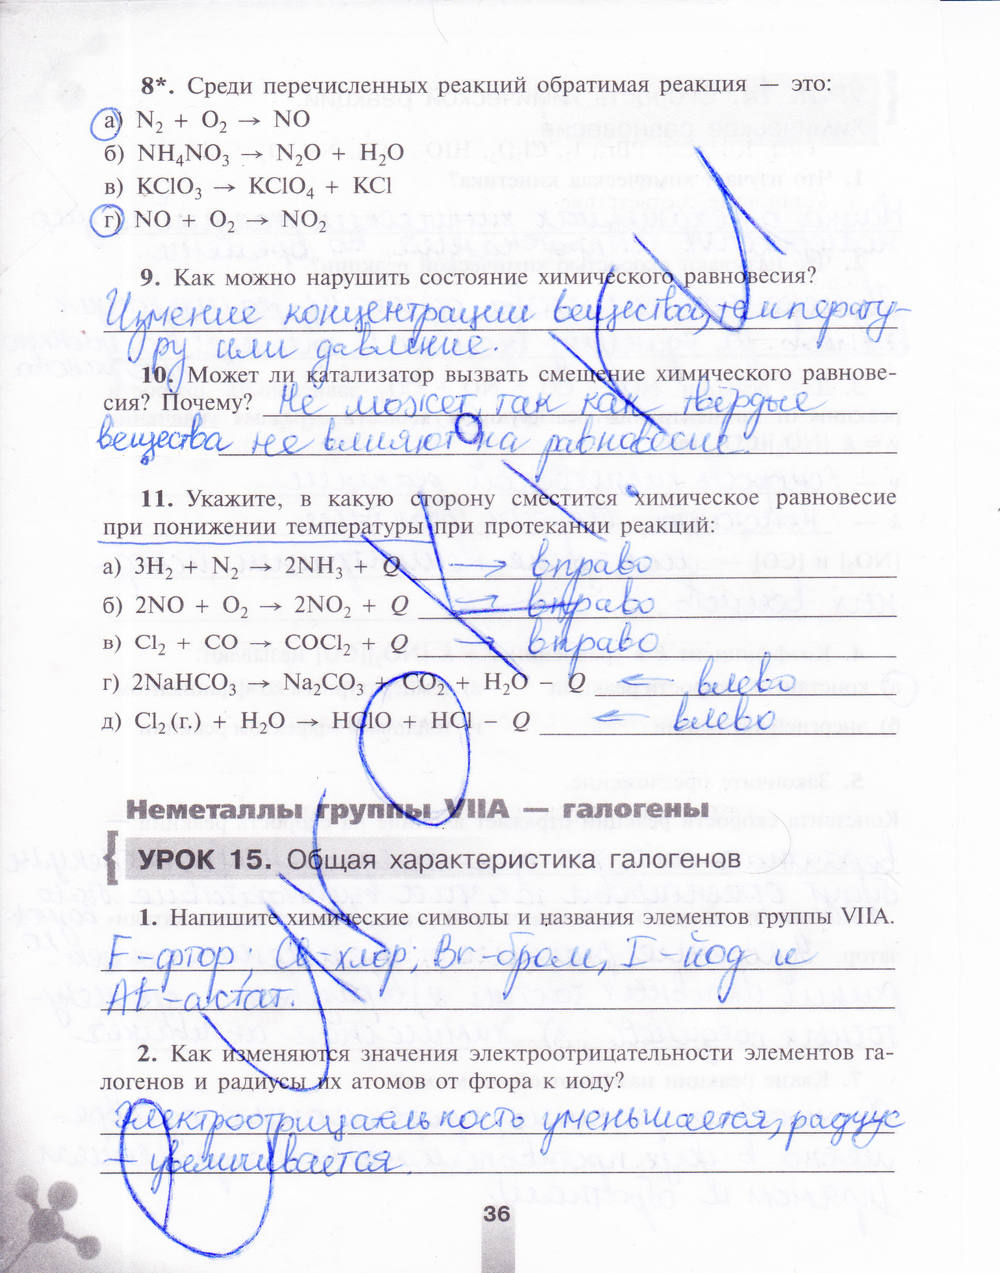 8*. Среди перечисленных реакций обратимая реакция — это:
а) N₂ + O₂ → NO
б) NH₄NO₃ → N₂O + H₂O
в) KClO₃ → KClO₄ + KCl
г) NO + O₂ → NO₂
9. Как можно нарушить состояние химического равновесия?
Измение концентрации вещества, температу-
ру или давление.
10. Может ли катализатор вызвать смещение химического равнове-
сия? Почему? Не может, так как твёрдые
вещества не влияют на равновесие.
11. Укажите, в какую сторону сместится химическое равновесие
при понижении температуры при протекании реакций:
а) 3H₂ + N₂ → 2NH₃ + Q → вправо
б) 2NO + O₂ → 2NO₂ + Q → вправо
в) Cl₂ + CO → COCl₂ + Q → вправо
г) 2NaHCO₃ → Na₂CO₃ + CO₂ + H₂O − Q ← влево
д) Cl₂ (г.) + H₂O → HClO + HCl − Q ← влево
Неметаллы группы VIIA — галогены
УРОК 15. Общая характеристика галогенов
1. Напишите химические символы и названия элементов группы VIIA.
F-фтор, Cl-хлор, Br-бром, I-йод и
At-астат
2. Как изменяются значения электроотрицательности элементов га-
логенов и радиусы их атомов от фтора к иоду?
Электроотрицательность уменьшается, радиус
– увеличивается.
36